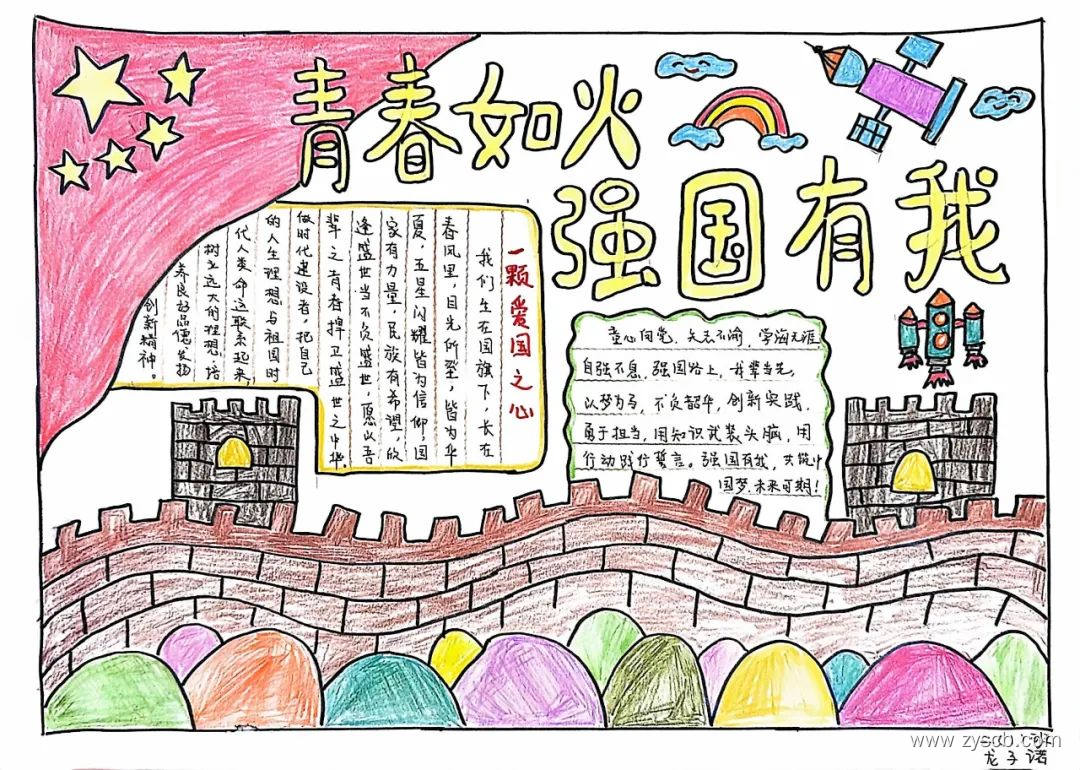 青春如火
强国有我
一颗爱国之心
我们生在国旗下,长在
春风里,目光所望,皆为华
夏,五星闪耀皆为信仰,国
家有力量,民族有希望,欣
逢盛世当不负盛世,愿以吾
辈之青春捍卫盛世之中华。
做时代建设者,把自己
的人生理想与祖国时
代人类命运联系起来,
树立远大的理想,培
养良好品德,发扬
创新精神。
童心向党,矢志不渝,学海无涯
自强不息,强国路上,我辈当先,
以梦为马,不负韶华,创新实践,
勇于担当,用知识武装头脑,用
行动践行誓言。强国有我,共筑中
国梦,未来可期!
www.zyscb.com
龙子诺